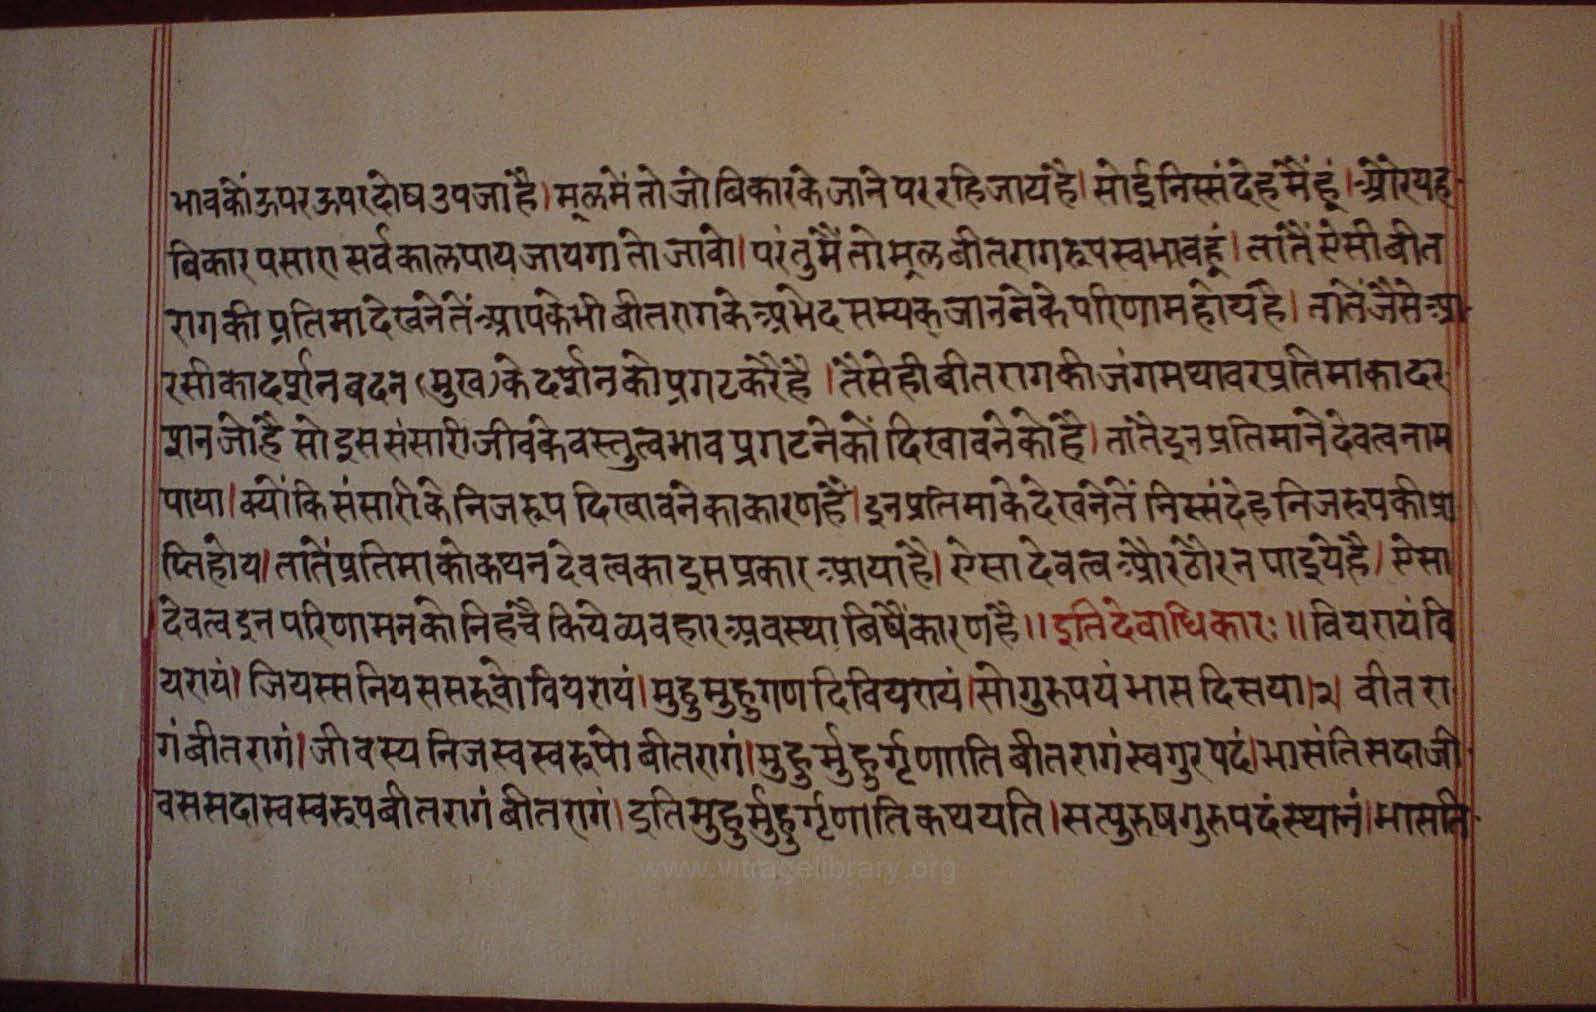 भावकों ऊपर ऊपर दोष उपजा है। मूलमें तो जो बिकारके जाने पर रहि जाय है। सोई निस्संदेह मैं हूं। और यह
बिकार पसारा सर्वकाल पाय जायगा तो जावो। परंतु मैं तो मूल बीतरागरूप स्वभाव हूं। तातैं ऐसी बीत
रागकी प्रतिमा देखनेतें आपके भी बीतरागके अभेद सम्यक् जाननेके परिणाम होय है। तातें जैसे आ
रसीका दर्शन वदन (मुख) के दर्शनको प्रगट करै है। तैसे ही बीतरागकी जंगम थावर प्रतिमाका दर
शन जो है सो इस संसारी जीवके वस्तुत्वभाव प्रगटनेकों दिखावनेको है। तातै इन प्रतिमाने देवत्व नाम
पाया। क्योंकि संसारीके निजरूप दिखावनेका कारण है। इन प्रतिमाके देखनेतें निस्संदेह निजरूपकी प्रा
प्ति होय। तातें प्रतिमाको कथन देवत्वका इस प्रकार आया है। ऐसा देवत्व और ठौर न पाइये है। ऐसा
देवत्व इन परिणामनको निहचै किये व्यवहार अवस्था बिषैं कारण है॥ इति देवाधिकारः॥ वियरायं वि
यरायं। जियस्स निय ससरूवो वियरायं। मुहु मुहु गणदि वियरायं। सो गुरुपयं भासदि सया।२। वीतरा
गं बीतरागं। जीवस्य निज स्वस्वरूपो बीतरागं। मुहुर्मुहुर्गृणाति बीतरागं स्व गुर पदं। भासंति सदा जी
वस सदा स्वस्वरूप बीतरागं बीतरागं। इति मुहुर्मुहुर्गृणाति कथयति। सत्पुरुष गुरुपदं स्थानं। भासति
www.vitragelibrary.org